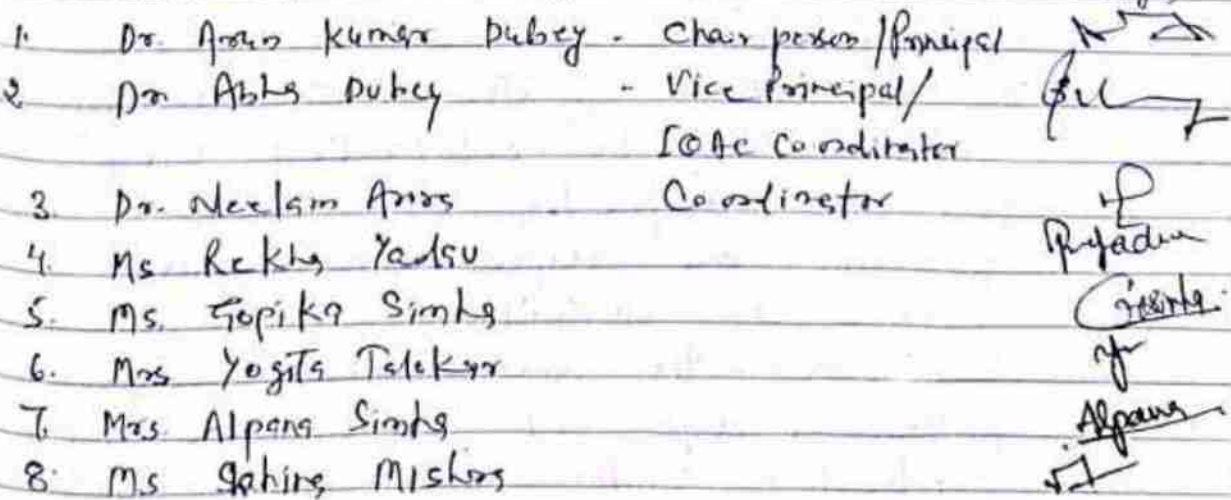 1. Dr. Arun Kumar Dubey - Chair person / Principal
2 Dr. Abha Dubey - Vice Principal/
IQAC Coordinator
3. Dr. Neelam Arora Coordinator
4. Ms Rekha Yadav
5. Ms. Gopika Simha
6. Mrs Yogita Talekar
7. Mrs. Alpana Simha Alpana
8. Ms Mishra